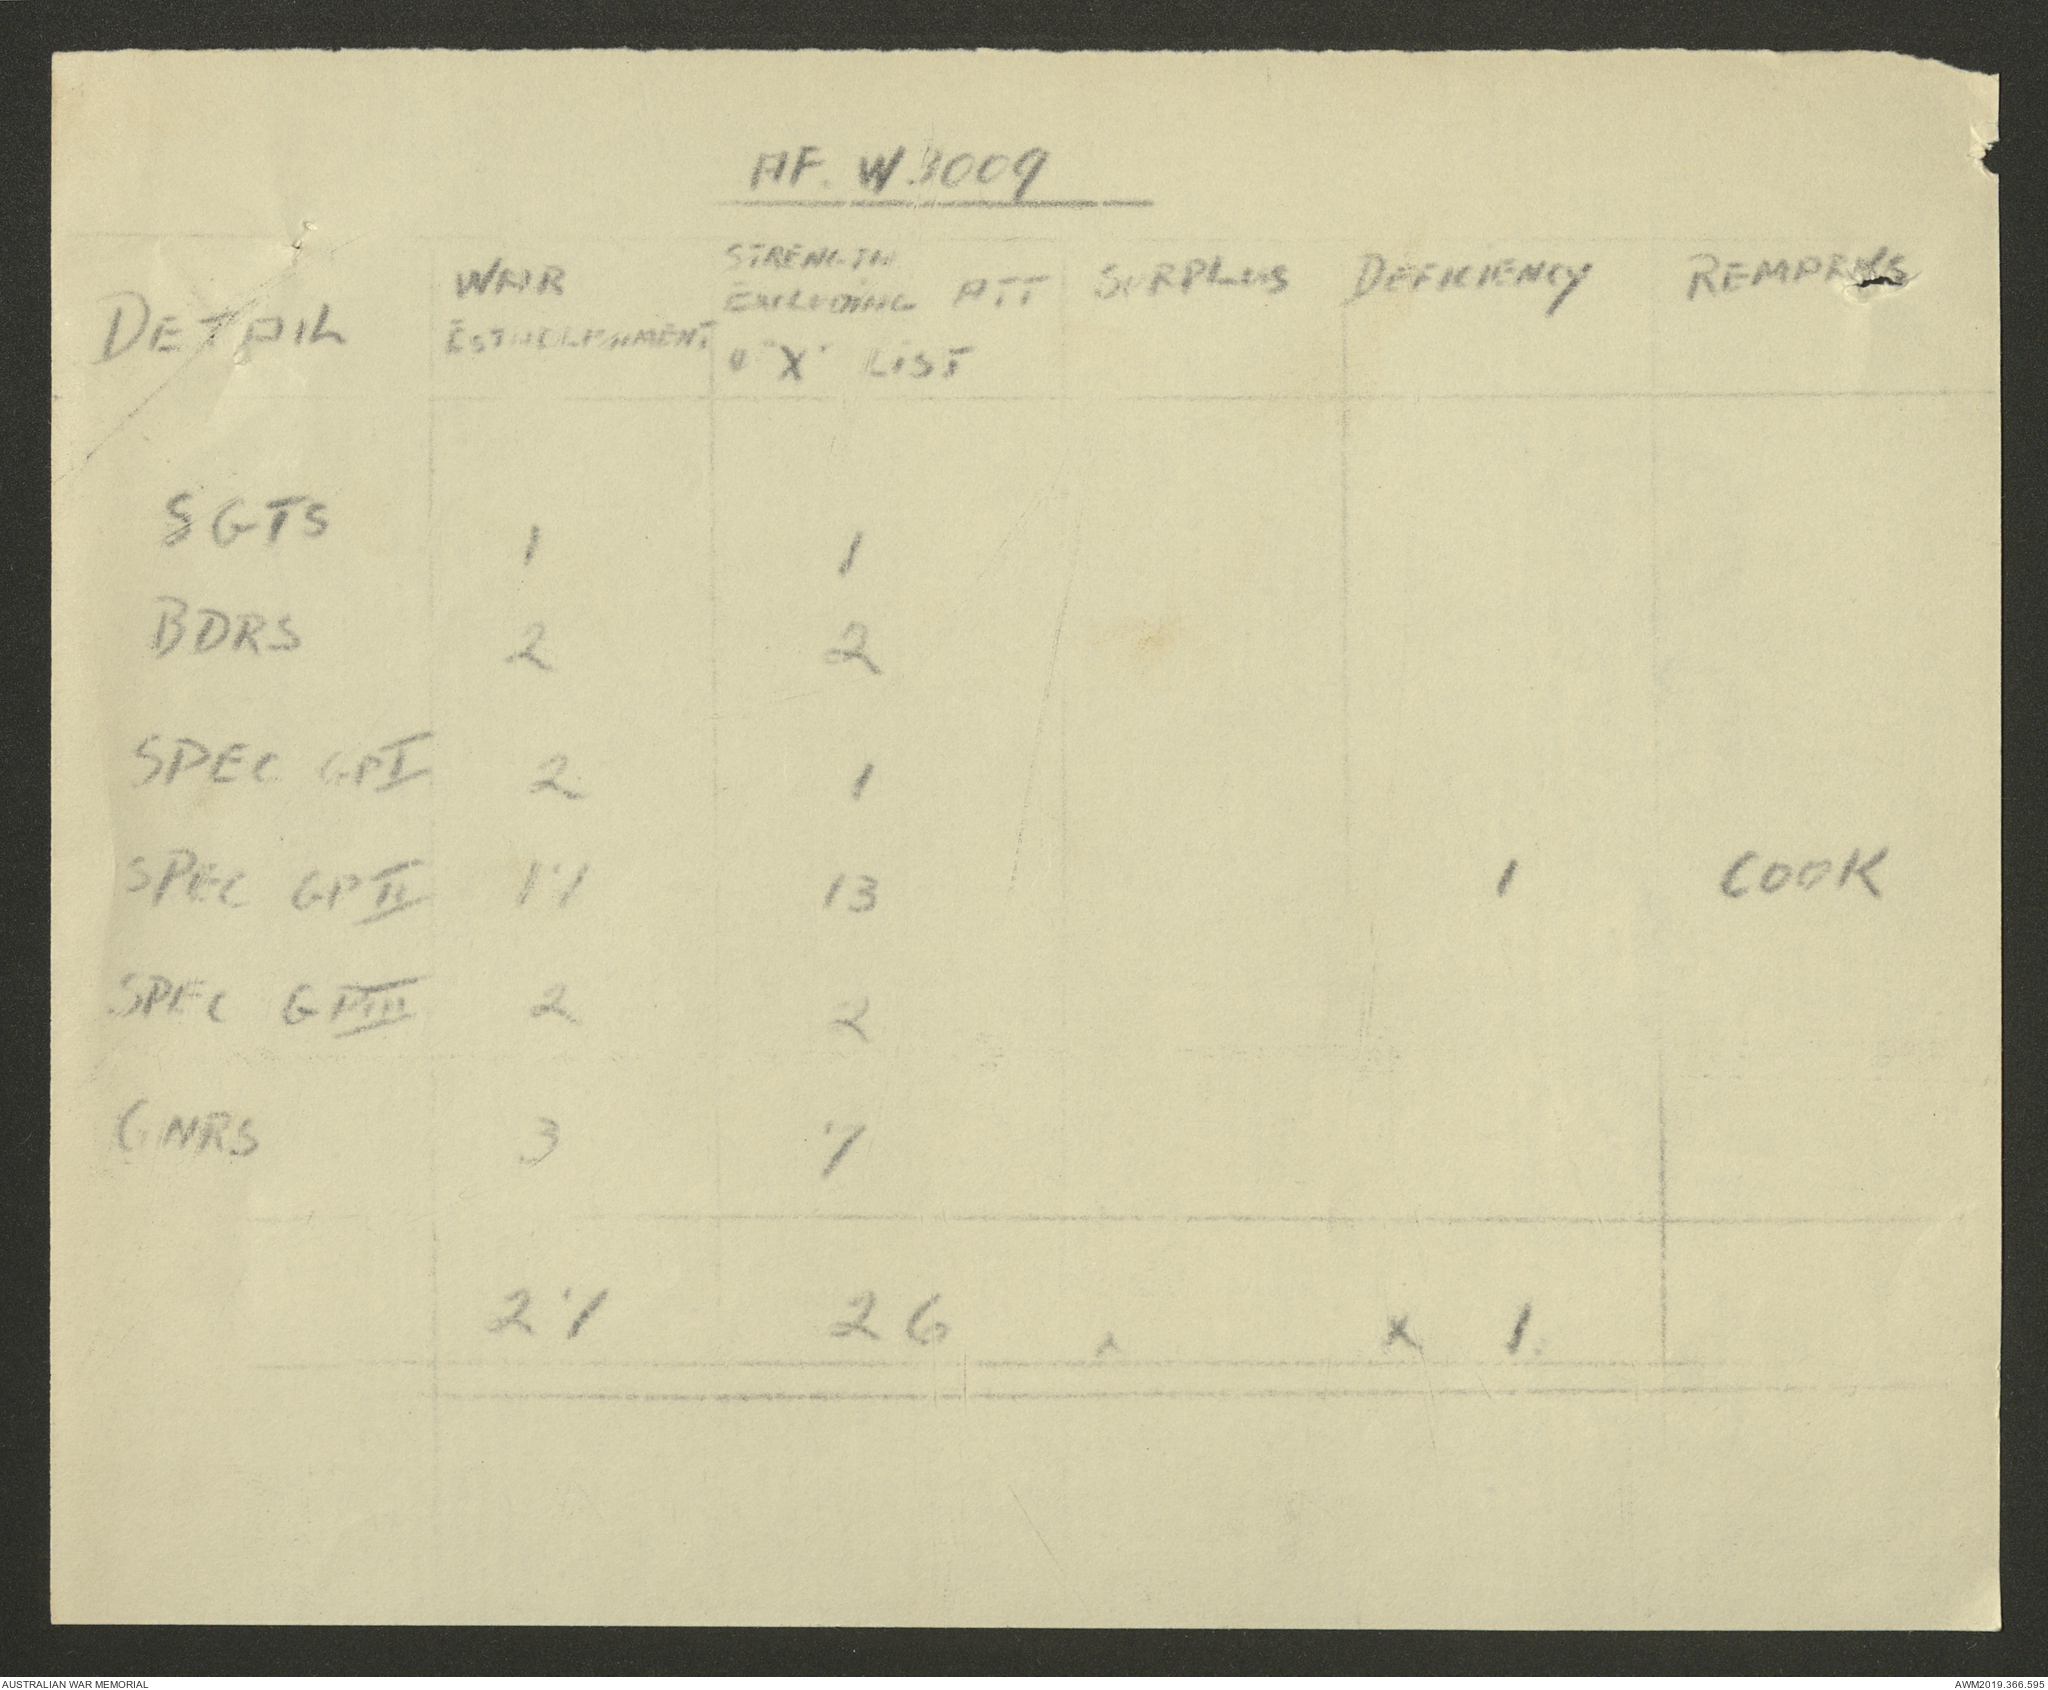 AF. W.3009
DETAIL WAR ESTABLISHMENT STRENGTH EXCLUDING ATT & "X" LIST SURPLUS DEFICIENCY REMARKS
SGTS 1 1
BDRS 2 2
SPEC GP I 2 1
SPEC GP II 17 13 1 COOK
SPEC GP III 2 2
GNRS 3 7
27 26 x x 1.
AUSTRALIAN WAR MEMORIAL
AWM2019.366.595